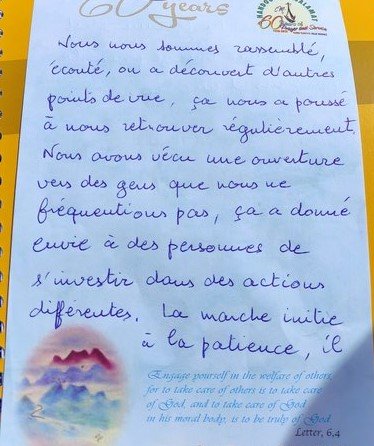 60 years
60
Nous nous sommes rassemblé,
écouté, on a découvert d'autres
points de vue, ça nous a poussé
à nous retrouver régulièrement.
Nous avons vécu une ouverture
vers des gens que nous ne
fréquentions pas, ça a donné
envie à des personnes de
s'investir dans des actions
différentes. La marche initie
à la patience, il
Engage yourself in the welfare of others
for to take care of others is to take care
of God, and to take care of God
in his moral body, is to be truly of God
Letter, 6,4